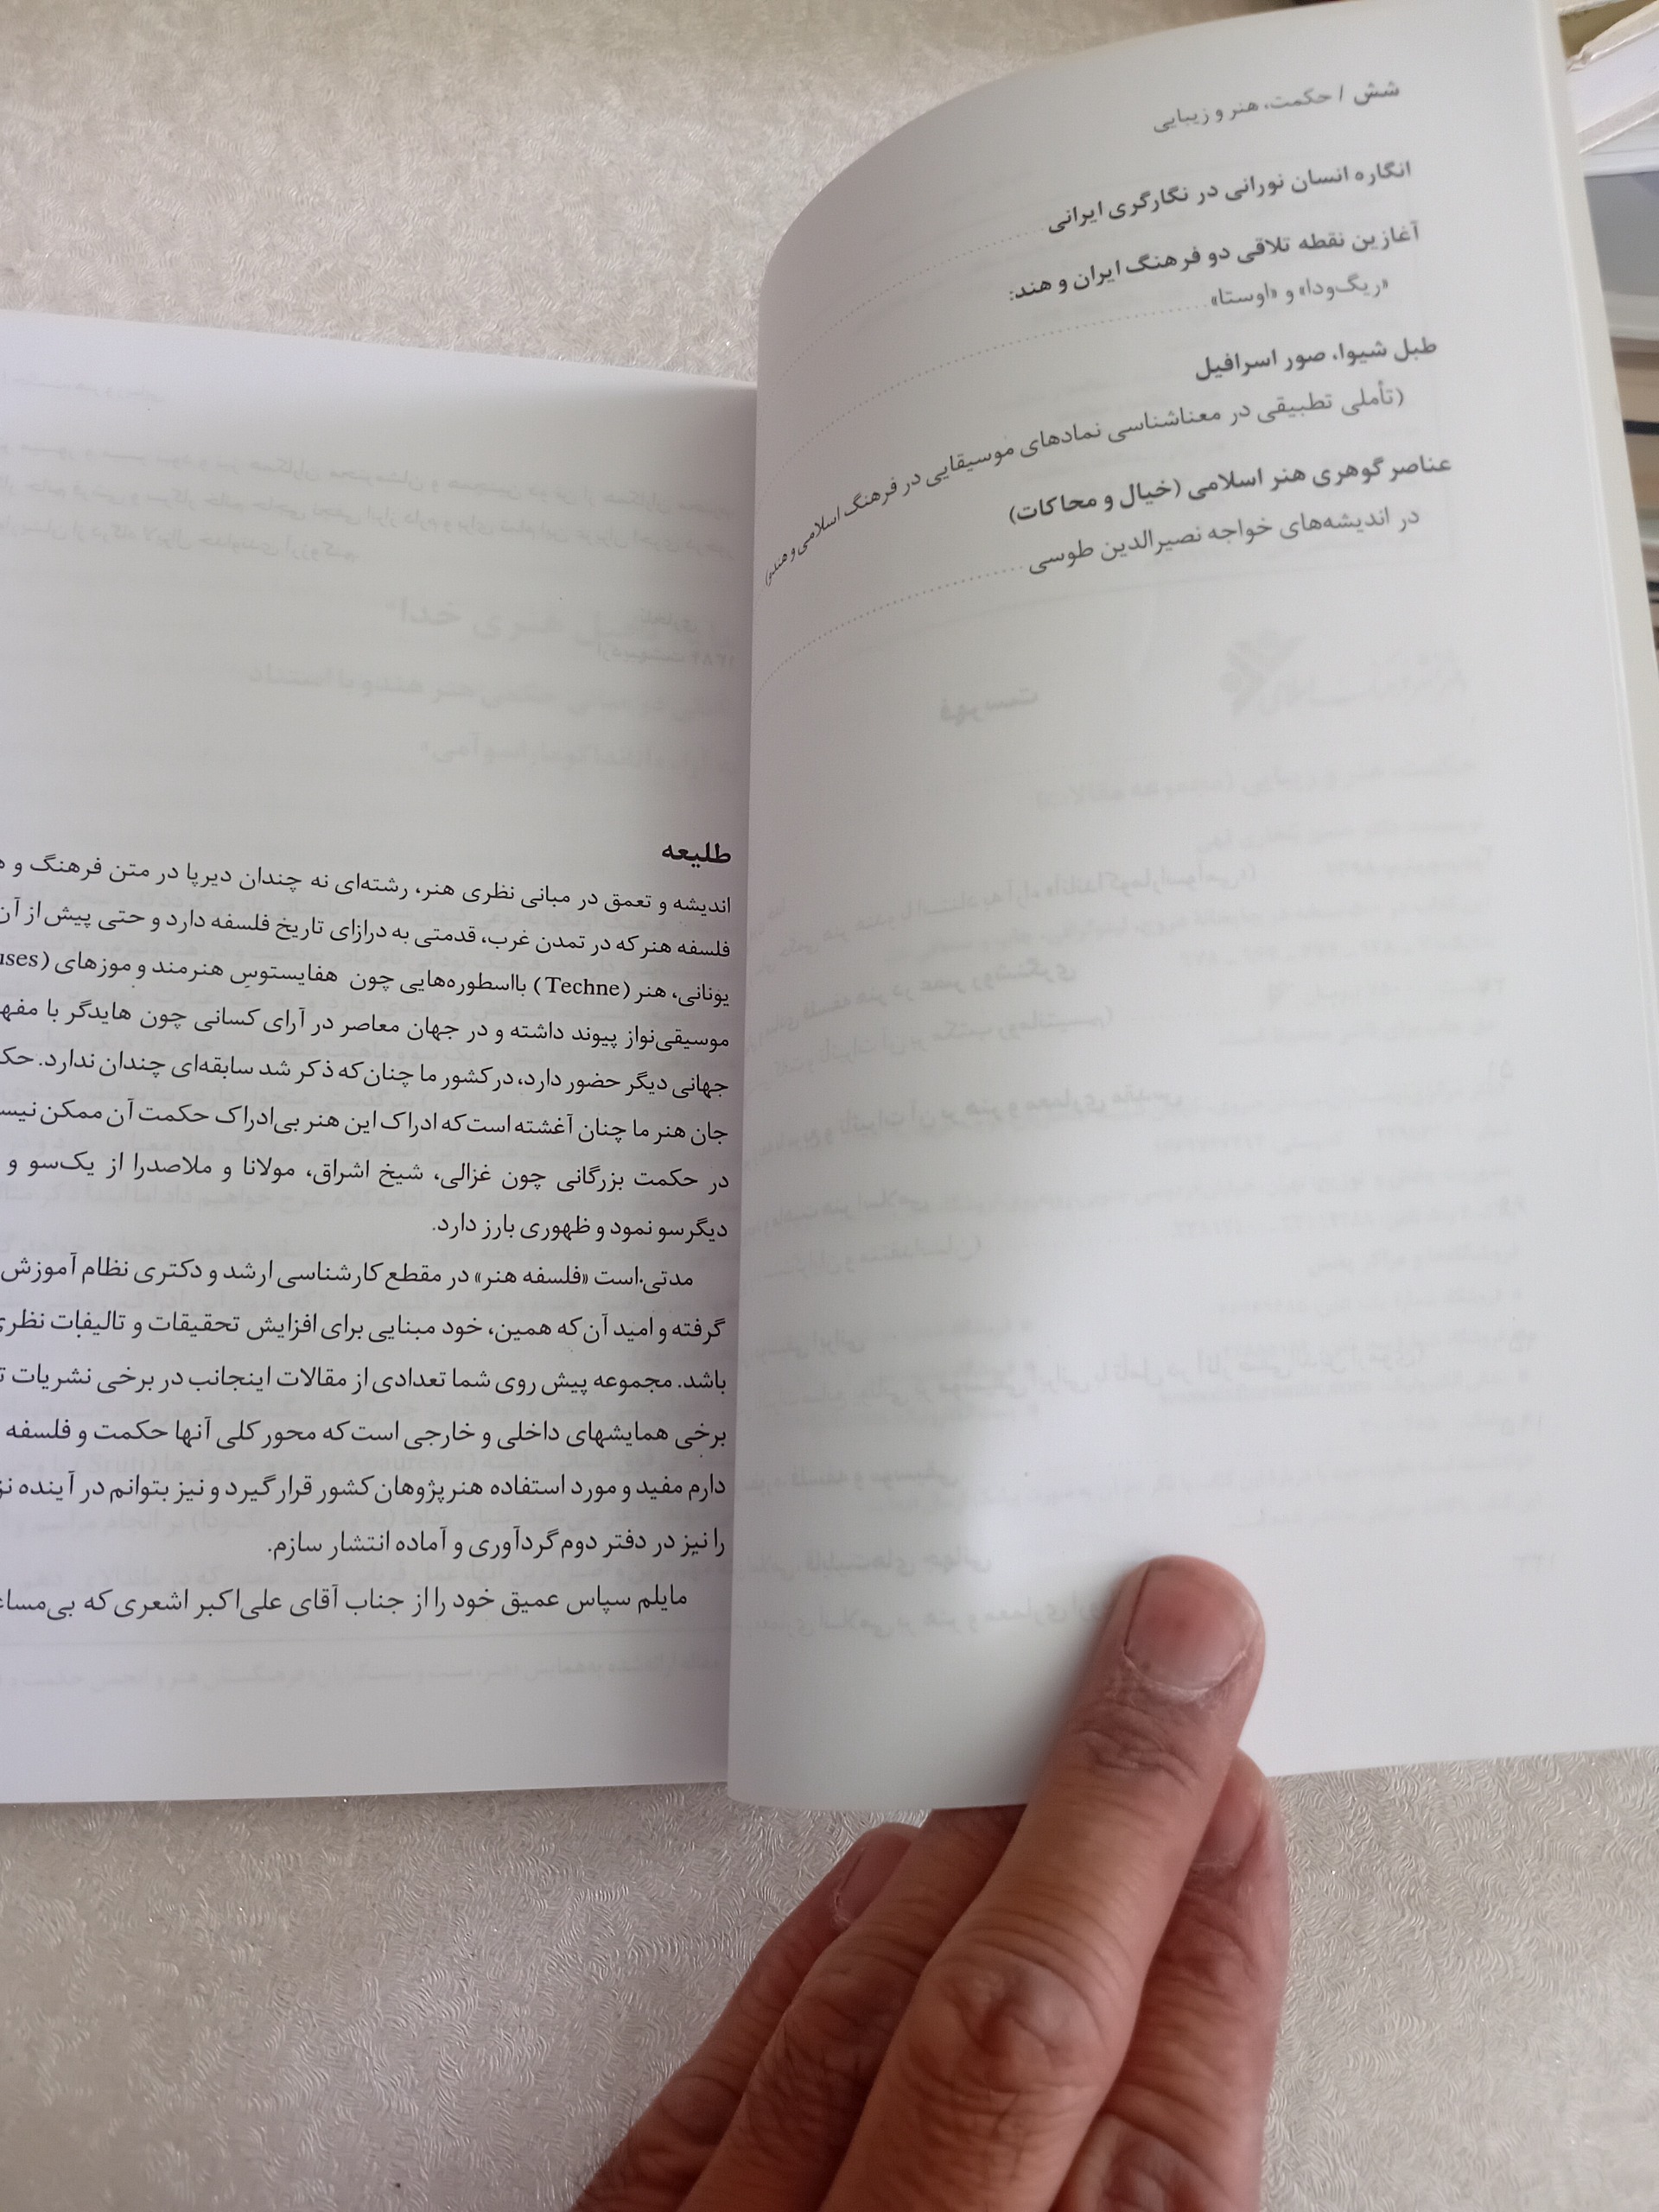 شش / حکمت، هنر و زیبایی
انگاره انسان نورانی در نگارگری ایرانی
آغازین نقطه تلاقی دو فرهنگ ایران و هند:
«ریگ‌ودا» و «اوستا»
طبل شیوا، صور اسرافیل
(تأملی تطبیقی در معناشناسی نمادهای موسیقایی در فرهنگ اسلامی و هندی)
عناصر گوهری هنر اسلامی (خیال و محاکات)
در اندیشه‌های خواجه نصیرالدین طوسی
طلیعه
اندیشه و تعمق در مبانی نظری هنر، رشته‌ای نه چندان دیرپا در متن فرهنگ و
فلسفه هنر که در تمدن غرب، قدمتی به درازای تاریخ فلسفه دارد و حتی پیش از آن
یونانی، هنر (Techne) بااسطوره‌هایی چون هفایستوس هنرمند و موزهای
موسیقی‌نواز پیوند داشته و در جهان معاصر در آرای کسانی چون هایدگر با
جهانی دیگر حضور دارد، در کشور ما چنان‌که ذکر شد سابقه‌ای چندان ندارد.
جان هنر ما چنان آغشته است که ادراک این هنر بی‌ادراک حکمت آن ممکن
در حکمت بزرگانی چون غزالی، شیخ اشراق، مولانا و ملاصدرا از یک‌سو و
دیگرسو نمود و ظهوری بارز دارد.
مدتی است «فلسفه هنر» در مقطع کارشناسی ارشد و دکتری نظام آموزش
گرفته و امید آن که همین، خود مبنایی برای افزایش تحقیقات و تالیفات
باشد. مجموعه پیش روی شما تعدادی از مقالات اینجانب در برخی نشریات
برخی همایشهای داخلی و خارجی است که محور کلی آنها حکمت و فلسفه
دارم مفید و مورد استفاده هنرپژوهان کشور قرار گیرد و نیز بتوانم در آینده
را نیز در دفتر دوم گردآوری و آماده انتشار سازم.
مایلم سپاس عمیق خود را از جناب آقای علی‌اکبر اشعری که